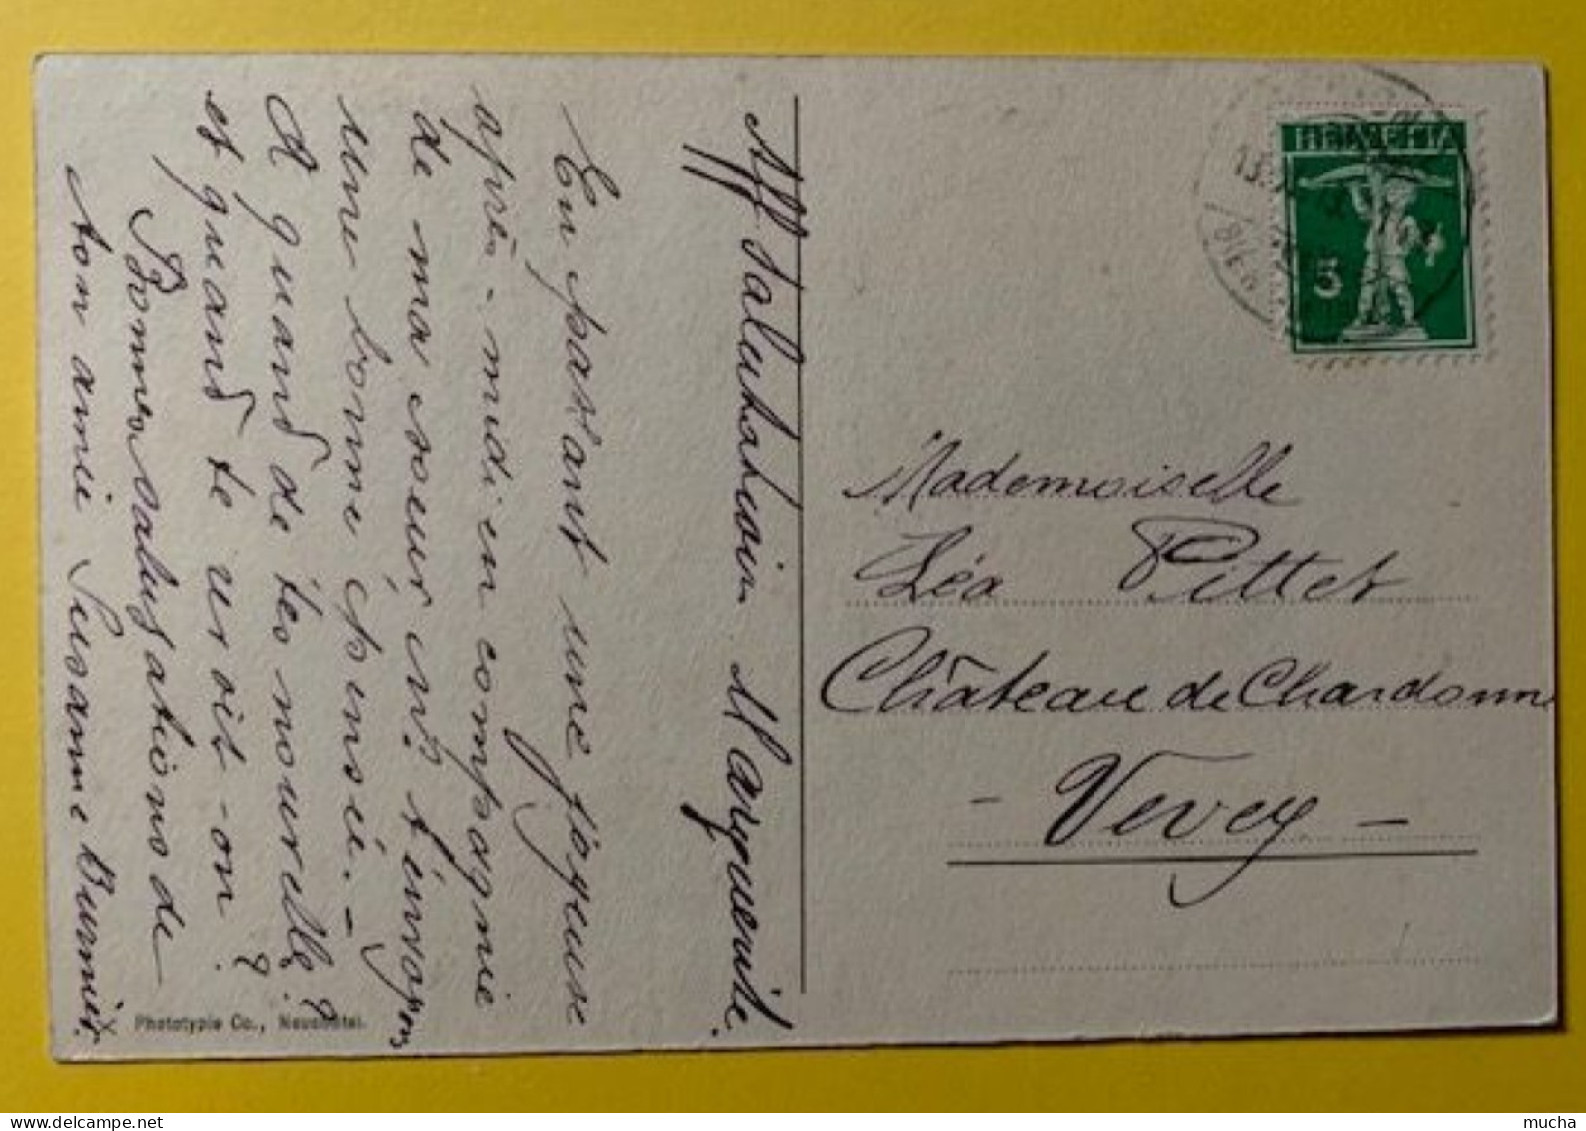 Aff Salutation Marguerite.
En passant une joyeuse
après-midi en compagnie
de ma soeur, ns t'envoyons
une bonne pensée. -
A quand de tes nouvelles?
et quand te veroit-on?
Bonnes salugations de
ton amie Susanne Burnier.
Phototypie Co., Neuchâtel.
HELVETIA
5
Mademoiselle
Léa Pittet
Château de Chardonne
- Vevey -
mucha